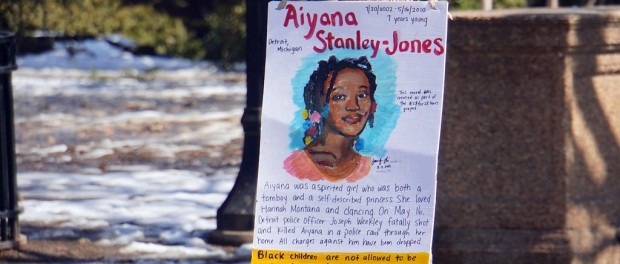 Aiyana
Stanley-Jones
7/20/2002 - 5/16/2010
7 years young
Detroit,
Michigan
This was
created as part of
project
Aiyana was a spirited girl who was both a
tomboy and a self-described princess. She loved
Hannah Montana and dancing. On May 16,
Detroit police officer Joseph Weekley fatally shot
and killed Aiyana in a police raid through her
home. All charges against him have been dropped.
Black children are not allowed to be